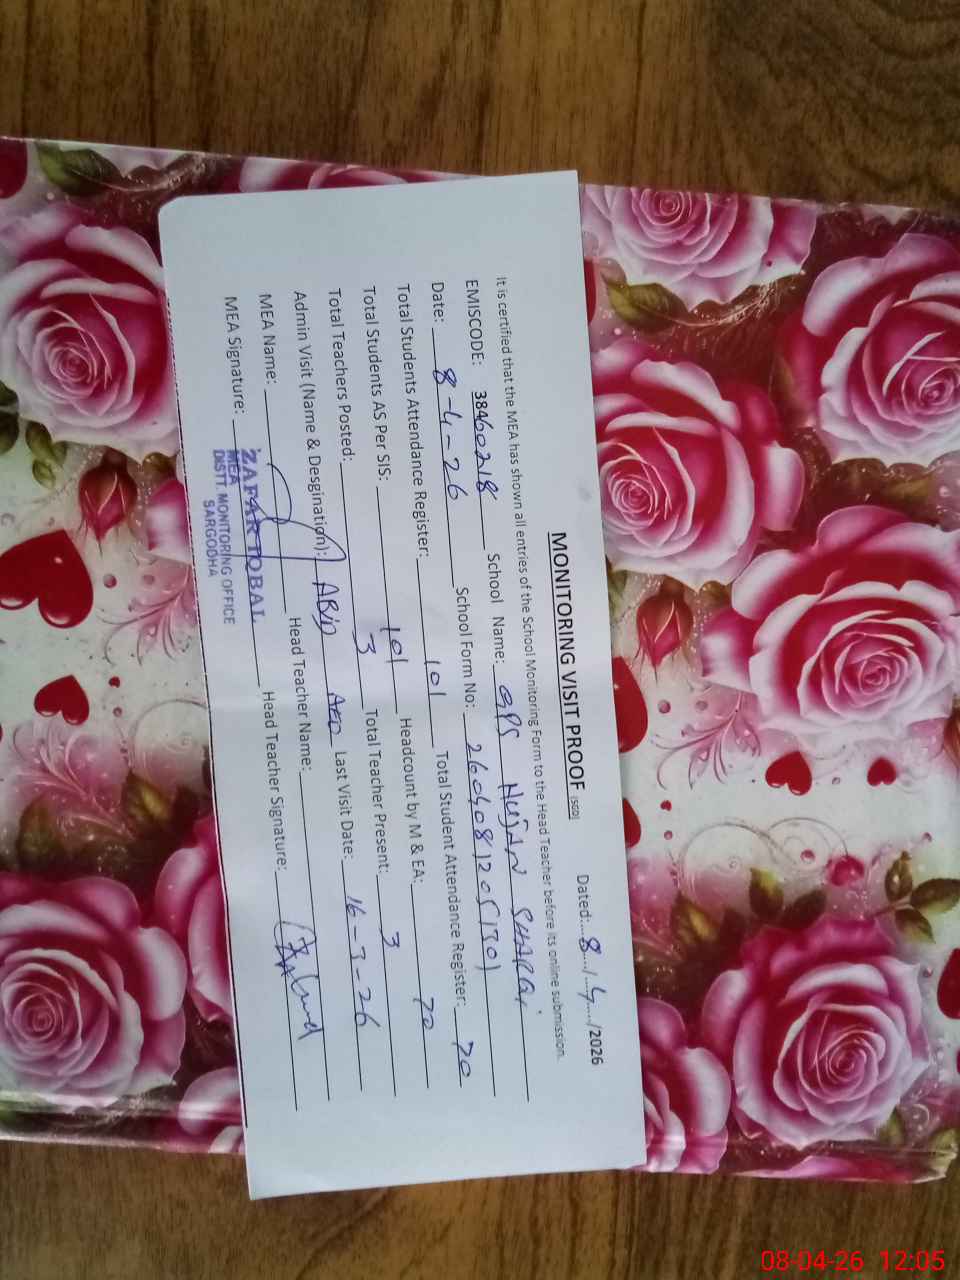 MONITORING VISIT PROOF (SGD) Dated:...8.../...4.../2026
It is certified that the MEA has shown all entries of the School Monitoring Form to the Head Teacher before its online submission.
EMISCODE: 38460218 School Name: GPS HUJAN SHARQI
Date: 8-4-26 School Form No: 26040812051301
Total Students Attendance Register: 101 Total Student Attendance Register: 70
Total Students AS Per SIS: 101 Headcount by M & EA: 70
Total Teachers Posted: 3 Total Teacher Present: 3
Admin Visit (Name & Desgination): ABID AEO Last Visit Date: 16-3-26
MEA Name: Head Teacher Name:
MEA Signature: Head Teacher Signature:
ZAFAR IQBAL
MEA
DISTT. MONITORING OFFICE
SARGODHA
08-04-26 12:05